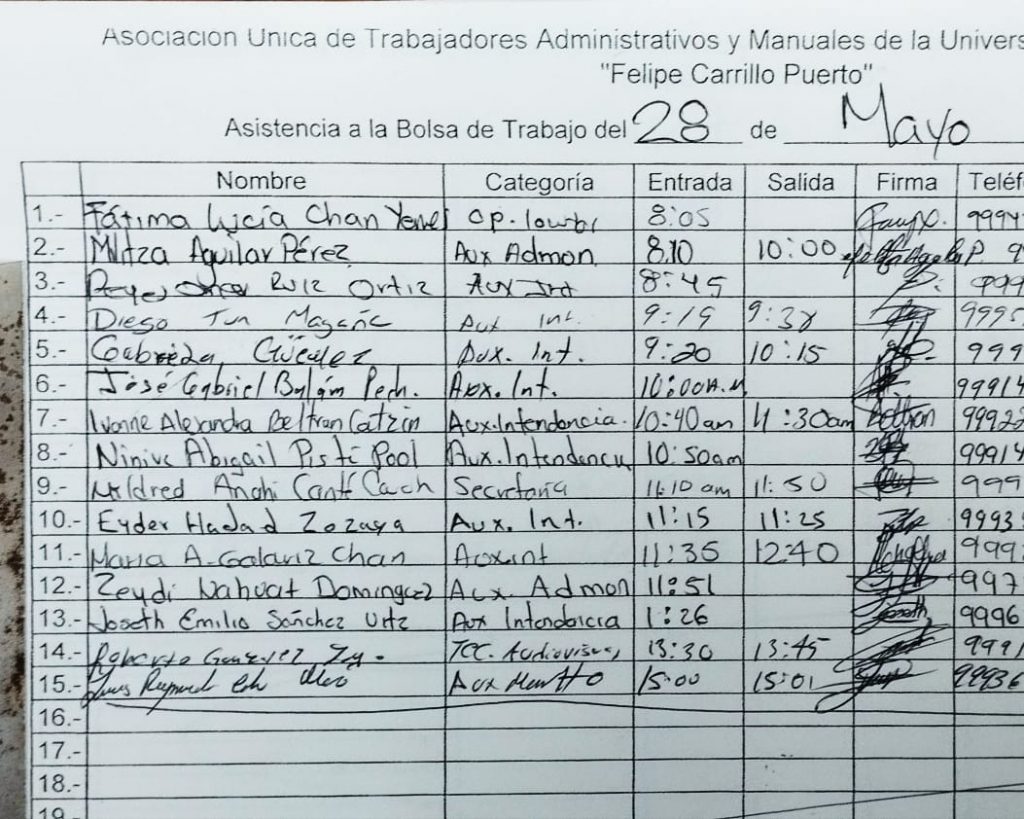 Asociación Única de Trabajadores Administrativos y Manuales de la Univers
"Felipe Carrillo Puerto"
Asistencia a la Bolsa de Trabajo del 28 de Mayo
Nombre Categoría Entrada Salida Firma Teléf
1.- Fátima Lucía Chan 8:05 9994
2.- Mitza Aguilar Pérez Aux Admon 8:10 10:00 9
3.- Ruiz Ortiz Aux Int 8:45 999
4.- Diego Tun Magaña Aux Int. 9:19 9:38 9995
5.- Gabriela Aux. Int. 9:20 10:15 999
6.- José Gabriel Pech. Aux. Int. 10:00 A.M 99914
7.- Ivonne Alejandra Beltran Catzin Aux.Intendencia. 10:40am 11:30am Beltran 99922
8.- Ninive Abigail Pisté Pool Aux.Intendencia 10:50am 99914
9.- Mildred Anahi Canté Cauch Secretaria 11:10 am 11:50 999
10.- Eyder Hadad Zozaya Aux. Int. 11:15 11:25 9993
11.- Maria A. Galariz Chan Auxint 11:35 12:40 999
12.- Zeydi Nahuat Dominguez Aux. Admon 11:51 997
13.- Joseth Emilio Sánchez Aux Intendencia 1:26 Joseth 9996
14.- Roberto Tec. Audiovisual 13:30 13:45 9991
15.- Aux Mantto 15:00 15:01 99936
16.-
17.-
18.-
19.-